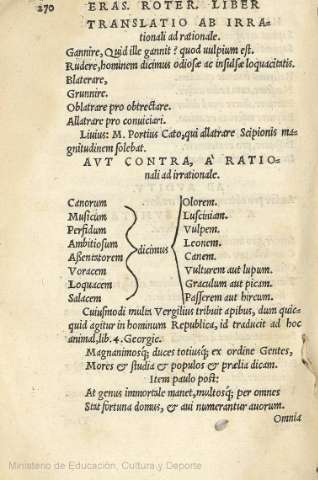 270 ERAS. ROTER. LIBER
TRANSLATIO AB IRRA-
tionali ad rationale.
Gannire, Quid ille gannit? quod uulpium est.
Rudere, hominem dicimus odiosæ ac insulsæ loquacitatis.
Blaterare,
Grunnire.
Oblatrare pro obtrectare.
Allatrare pro conuiciari.
Liuius: M. Portius Cato, qui allatrare Scipionis ma-
gnitudinem solebat.
AVT CONTRA, A RATIO-
nali ad irrationale.
Canorum Olorem.
Musicum Lusciniam.
Perfidum Vulpem.
Ambitiosum Leonem.
Assentatorem dicimus Canem.
Voracem Vulturem aut lupum.
Loquacem Graculum aut picam.
Salacem Passerem aut hircum.
Cuiusmodi multa Vergilius tribuit apibus, dum quic-
quid agitur in hominum Republica, id traducit ad hoc
animal, lib. 4. Georgic.
Magnanimosq; duces totiusq; ex ordine Gentes,
Mores & studia & populos & prælia dicam.
Item paulo post:
At genus immortale manet, multosq; per omnes
Stat fortuna domus, & aui numerantur auorum.
Omnia
Ministerio de Educación, Cultura y Deporte